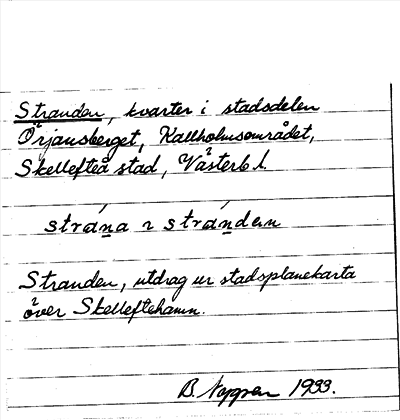 Stranden, kvarter i stadsdelen
Örjansberget, Kallholmsområdet,
Skellefteå stad, Västerb l.
strána ~ strándɛn
Stranden, utdrag ur stadsplanekarta
över Skelleftehamn.
B. Nygren 1933.